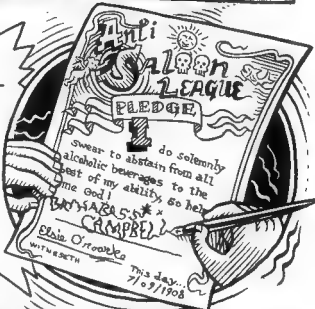 Anti
Saloon
LEAGUE
PLEDGE
I do solemnly
swear to abstain from all
alcoholic beverages to the
best of my ability, so help
me God!
CAMPBELL
Elsie O'rourke
WITNESSETH
This day...
7/09/1908